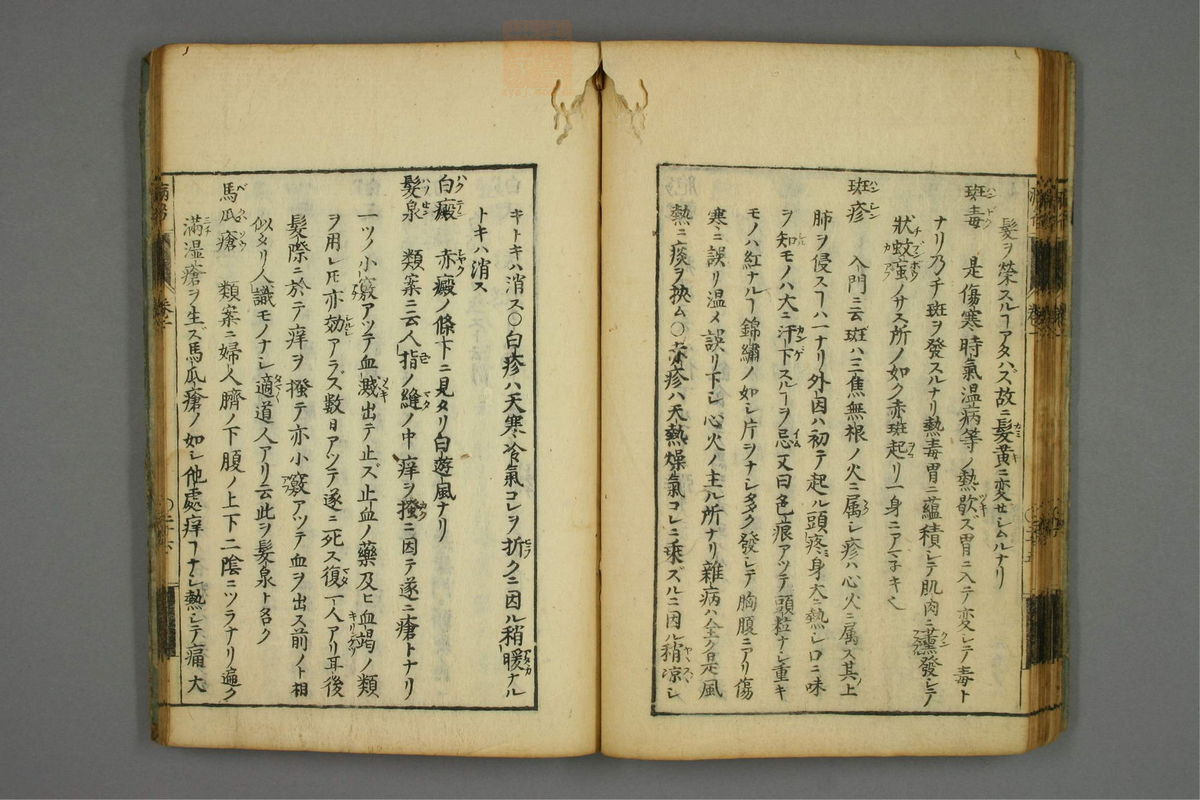 髪ヲ榮スルヿアタハズ故ニ髪黄ニ変セシムルナリ
斑毒 是傷寒時氣温病等ノ熱歇ズ胃ニ入テ変シテ毒ト
ナリ乃チ斑ヲ發スルナリ熱毒胃ニ蘊積シテ肌肉ニ薫發シテ
狀蚊䖟ノサス所ノ如ク赤斑起リ一身ニアマ子キ也
斑疹 入門ニ云斑ハ三焦無根ノ火ニ属シ疹ハ心火ニ属ス其上
肺ヲ侵スヿハ一ナリ外因ハ初テ起ル頭疼身大ニ熱シ口ニ味
ヲ知モノハ大ニ汗下スルヿヲ忌又曰色痕アツテ頭粒ナシ重キ
モノハ紅ナルヿ錦繡ノ如シ片ヲナシ多ク發シテ胸腹ニアリ傷
寒ニ誤リ温メ誤リ下シ心火ノ主ル所ナリ雜病ハ全ク是風
熱ニ痰ヲ挾ム〇赤疹ハ天熱燥氣コレニ乘ズルニ因ル稍凉シ
キトキハ消ス〇白疹ハ天寒冷氣コレヲ折クニ因ル稍暖ナル
トキハ消ス
白癜 赤癜ノ條下ニ見タリ白遊風ナリ
髮泉 類案ニ云人指ノ縫ノ中痒ヲ搔ニ因テ遂ニ瘡トナリ
一ツノ小竅アツテ血濺出テ止ズ止血ノ藥及ヒ血竭ノ類
ヲ用レ𪜈亦効アラズ数日アツテ遂ニ死ス復一人アリ耳後
髮際ニ於テ痒ヲ搔テ亦小竅アツテ血ヲ出ス前ノト相
似タリ人識モノナシ適道人アリ云此ヲ髮泉ト名ク
馬瓜瘡 類案ニ婦人臍ノ下腹ノ上下二陰ニツラナリ遍ク
滿湿瘡ヲ生ズ馬瓜瘡ノ如シ他處痒ヿナシ熱シテ痛大